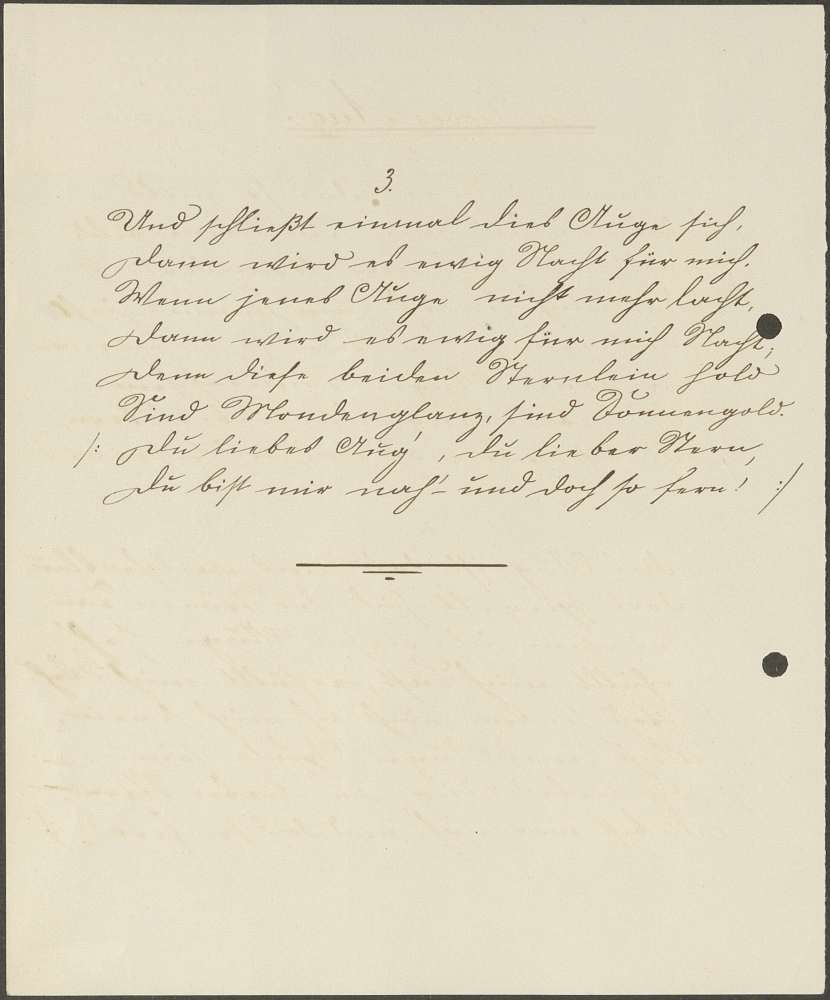 3.
Und schließt einmal dies Auge sich,
Dann wird es ewig Nacht für mich.
Wenn jenes Auge nicht mehr lacht,
Dann wird es ewig für mich Nacht;
Denn diese beiden Sternlein hold
Sind Mondenglanz, sind Sonnengold.
/: Du liebes Aug', du lieber Stern,
Du bist mir nah' – und doch so fern! :/